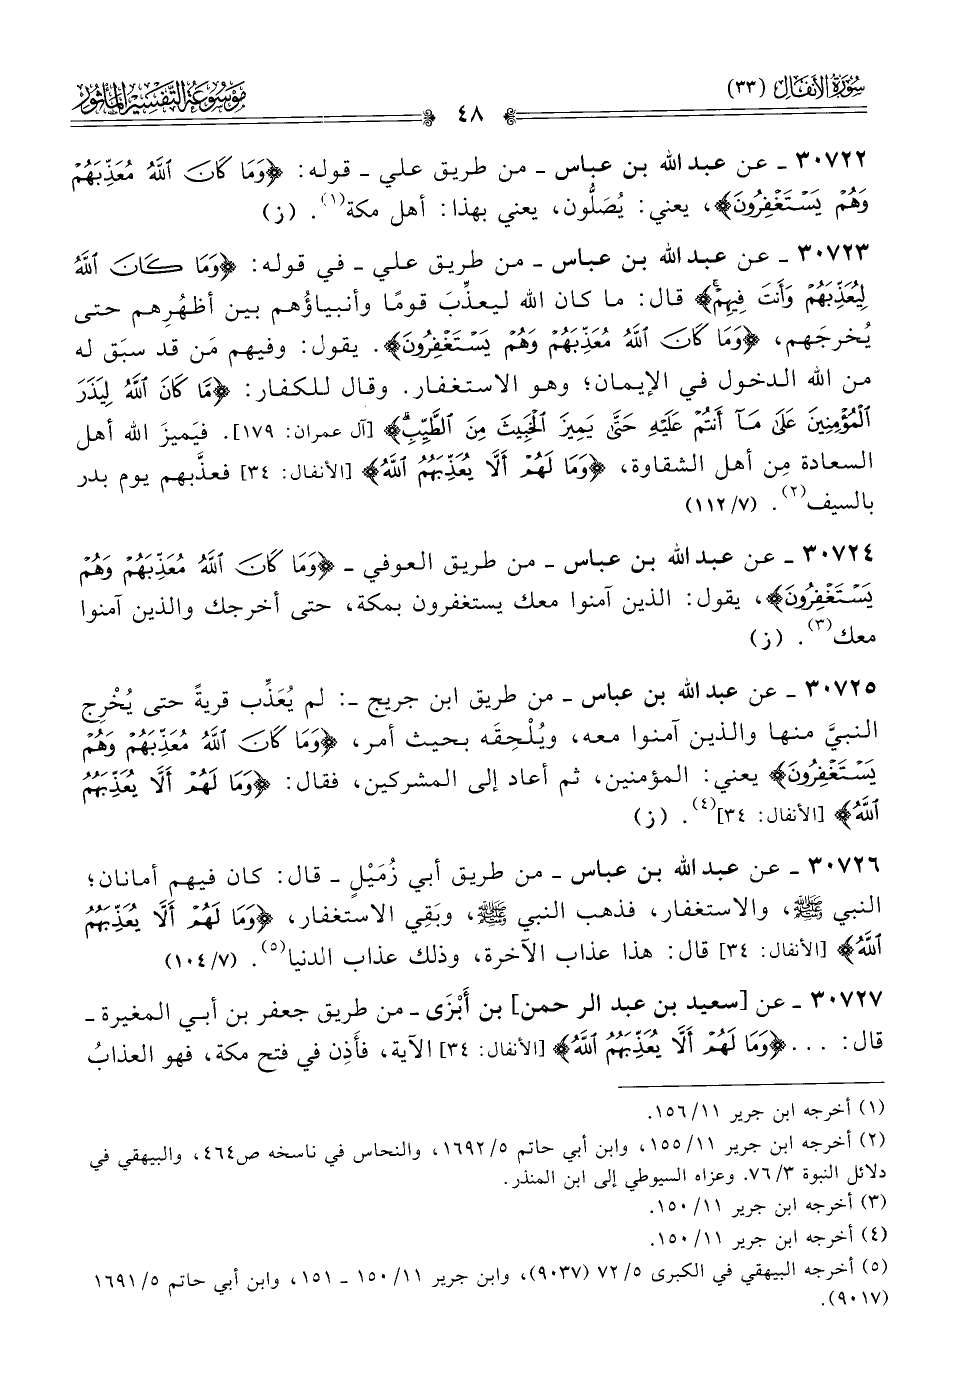 سُورَةُ الأَنفَال (٣٣)
٤٨
مَوْسُوعَةُ التَّفْسِيرِ المَأْثُور
٣٠٧٢٢ ـ عن عبد الله بن عباس ـ من طريق علي ـ قوله: ﴿وَمَا كَانَ ٱللَّهُ مُعَذِّبَهُمْ
وَهُمْ يَسْتَغْفِرُونَ﴾، يعني: يُصَلُّون، يعني بهذا: أهل مكة(١). (ز)
٣٠٧٢٣ ـ عن عبد الله بن عباس ـ من طريق علي ـ في قوله: ﴿وَمَا كَانَ ٱللَّهُ
لِيُعَذِّبَهُمْ وَأَنتَ فِيهِمْۚ﴾ قال: ما كان الله ليعذِّبَ قومًا وأنبياؤُهم بين أظهُرِهم حتى
يُخرجَهم، ﴿وَمَا كَانَ ٱللَّهُ مُعَذِّبَهُمْ وَهُمْ يَسْتَغْفِرُونَ﴾. يقول: وفيهم مَن قد سبَق له
من الله الدخول في الإيمان؛ وهو الاستغفار. وقال للكفار: ﴿مَّا كَانَ ٱللَّهُ لِيَذَرَ
ٱلْمُؤْمِنِينَ عَلَىٰ مَآ أَنتُمْ عَلَيْهِ حَتَّىٰ يَمِيزَ ٱلْخَبِيثَ مِنَ ٱلطَّيِّبِۗ﴾ [آل عمران: ١٧٩]. فيَميزَ الله أهل
السعادة مِن أهل الشقاوة، ﴿وَمَا لَهُمْ أَلَّا يُعَذِّبَهُمُ ٱللَّهُ﴾ [الأنفال: ٣٤] فعذَّبهم يوم بدر
بالسيف(٢). (١١٢/٧)
٣٠٧٢٤ ـ عن عبد الله بن عباس ـ من طريق العوفي ـ ﴿وَمَا كَانَ ٱللَّهُ مُعَذِّبَهُمْ وَهُمْ
يَسْتَغْفِرُونَ﴾، يقول: الذين آمنوا معك يستغفرون بمكة، حتى أخرجك والذين آمنوا
معك(٣). (ز)
٣٠٧٢٥ ـ عن عبد الله بن عباس ـ من طريق ابن جريج ـ: لم يُعَذِّب قريةً حتى يُخْرِج
النبيَّ منها والذين آمنوا معه، ويُلْحِقَه بحيث أمر، ﴿وَمَا كَانَ ٱللَّهُ مُعَذِّبَهُمْ وَهُمْ
يَسْتَغْفِرُونَ﴾ يعني: المؤمنين، ثم أعاد إلى المشركين، فقال: ﴿وَمَا لَهُمْ أَلَّا يُعَذِّبَهُمُ
ٱللَّهُ﴾ [الأنفال: ٣٤](٤). (ز)
٣٠٧٢٦ ـ عن عبد الله بن عباس ـ من طريق أبي زُمَيْلٍ ـ قال: كان فيهم أمانان؛
النبي ﷺ، والاستغفار، فذهب النبي ﷺ، وبَقِي الاستغفار، ﴿وَمَا لَهُمْ أَلَّا يُعَذِّبَهُمُ
ٱللَّهُ﴾ [الأنفال: ٣٤] قال: هذا عذاب الآخرة، وذلك عذاب الدنيا(٥). (١٠٤/٧)
٣٠٧٢٧ ـ عن [سعيد بن عبد الرحمن] بن أَبْزَى ـ من طريق جعفر بن أبي المغيرة ـ
قال: ... ﴿وَمَا لَهُمْ أَلَّا يُعَذِّبَهُمُ ٱللَّهُ﴾ [الأنفال: ٣٤] الآية، فأَذِن في فتح مكة، فهو العذابُ
(١) أخرجه ابن جرير ١١/ ١٥٦.
(٢) أخرجه ابن جرير ١١/ ١٥٥، وابن أبي حاتم ٥/ ١٦٩٢، والنحاس في ناسخه ص٤٦٤، والبيهقي في
دلائل النبوة ٣/ ٧٦. وعزاه السيوطي إلى ابن المنذر.
(٣) أخرجه ابن جرير ١١/ ١٥٠.
(٤) أخرجه ابن جرير ١١/ ١٥٠.
(٥) أخرجه البيهقي في الكبرى ٥/ ٧٢ (٩٠٣٧)، وابن جرير ١١/ ١٥٠ ـ ١٥١، وابن أبي حاتم ٥/ ١٦٩١
(٩٠١٧).